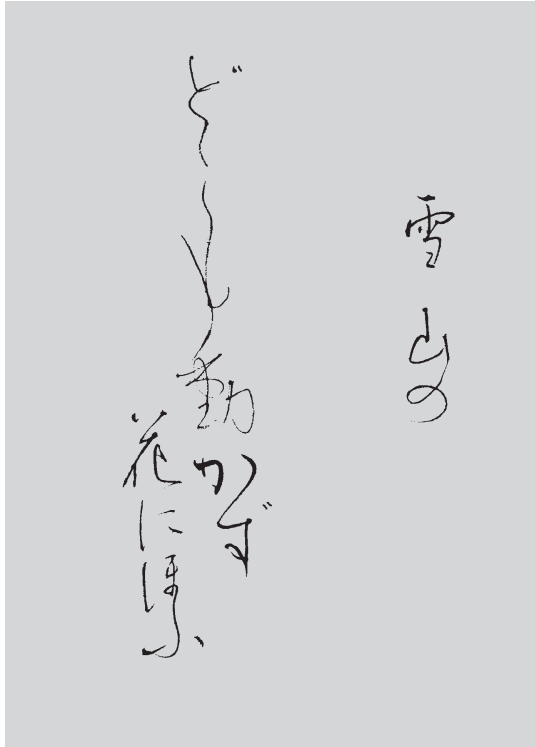 雪山の
どこも動かず
花にほふ